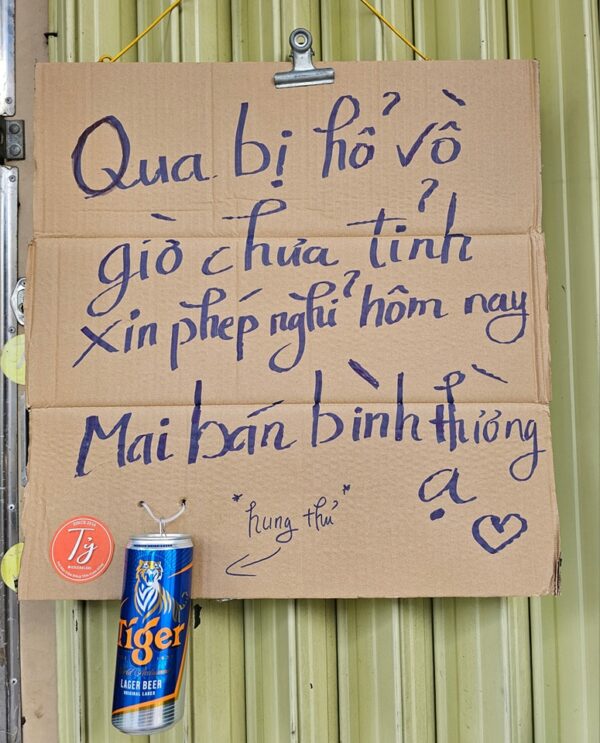 Qua bị hổ vồ
giờ chưa tỉnh
xin phép nghỉ hôm nay
Mai bán bình thường
ạ
"hung thủ"
SINCE 2018
Tỷ
Tiger
LAGER BEER
ORIGINAL LAGER